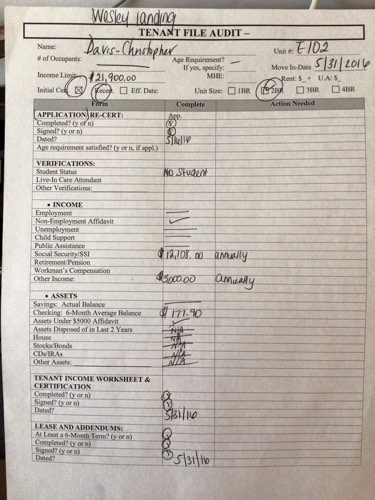 Wesley landing
TENANT FILE AUDIT –
Name: Davis-Christopher Unit #: E102
# of Occupants: Age Requirement? – Move In-Date 5/31/2016
If yes, specify:
Income Limit: $21,900.00 MHE: Rent: $ + U.A: $
Initial Cert. ☒ Recert. ☐ Eff. Date: Unit Size: ☐ 1BR ☐ 2BR ☐ 3BR ☐ 4BR
Form Complete Action Needed
APPLICATION/RE-CERT: App.
Completed? (y or n) Y
Signed? (y or n)
Dated? 5/16/16
Age requirement satisfied? (y or n, if appl.)
VERIFICATIONS:
Student Status No Student
Live-In Care Attendant
Other Verifications:
• INCOME
Employment
Non-Employment Affidavit ✓
Unemployment
Child Support
Public Assistance
Social Security/SSI $12,108.00 annually
Retirement/Pension
Workman's Compensation
Other Income: $5000.00 annually
• ASSETS
Savings: Actual Balance
Checking: 6-Month Average Balance $177.90
Assets Under $5000 Affidavit ✓
Assets Disposed of in Last 2 Years N/A
House N/A
Stocks/Bonds N/A
CDs/IRAs N/A
Other Assets: N/A
TENANT INCOME WORKSHEET &
CERTIFICATION
Completed? (y or n) Y
Signed? (y or n) Y
Dated? 5/31/16
LEASE AND ADDENDUMS:
At Least a 6-Month Term? (y or n) Y
Completed? (y or n) Y
Signed? (y or n) Y
Dated? 5/31/16